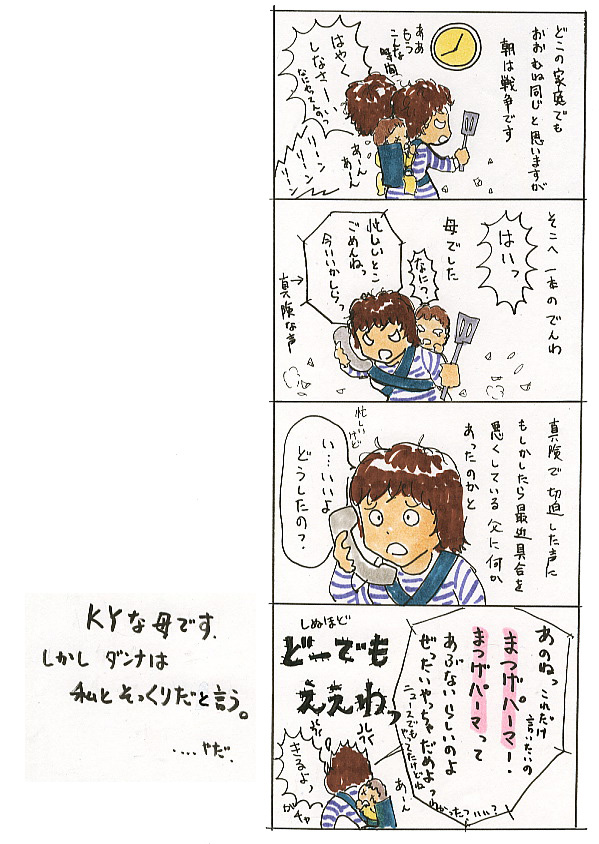 どこの家庭でも
おおむね同じと思いますが
朝は戦争です
ああ
もう
こんな
時間
はやく
しなさーい
なにやってんのっ
あーん
あーん
リーン
リーン
そこへ一本のでんわ
はいっ
母でした
なにっ
忙しいとこ
ごめんねっ
今いいかしらっ
真険な声
真険で切迫した声に
もしかしたら最近具合を
悪くしている父に何か
あったのかと
忙しいけど
い…いいよ
どうしたの？
あのねっこれだけ
言いたいの
まつげパーマー！
まつげパーマって
あぶないらしいのよ
ぜったいやっちゃだめよっ
ニュースでもやってたけどね
わかったっ！いい？
しぬほど
どーでも
ええわっ
あーん
きるよっ
ガチャ
KYな母です.
しかしダンナは
私とそっくりだと言う。
....やだ.